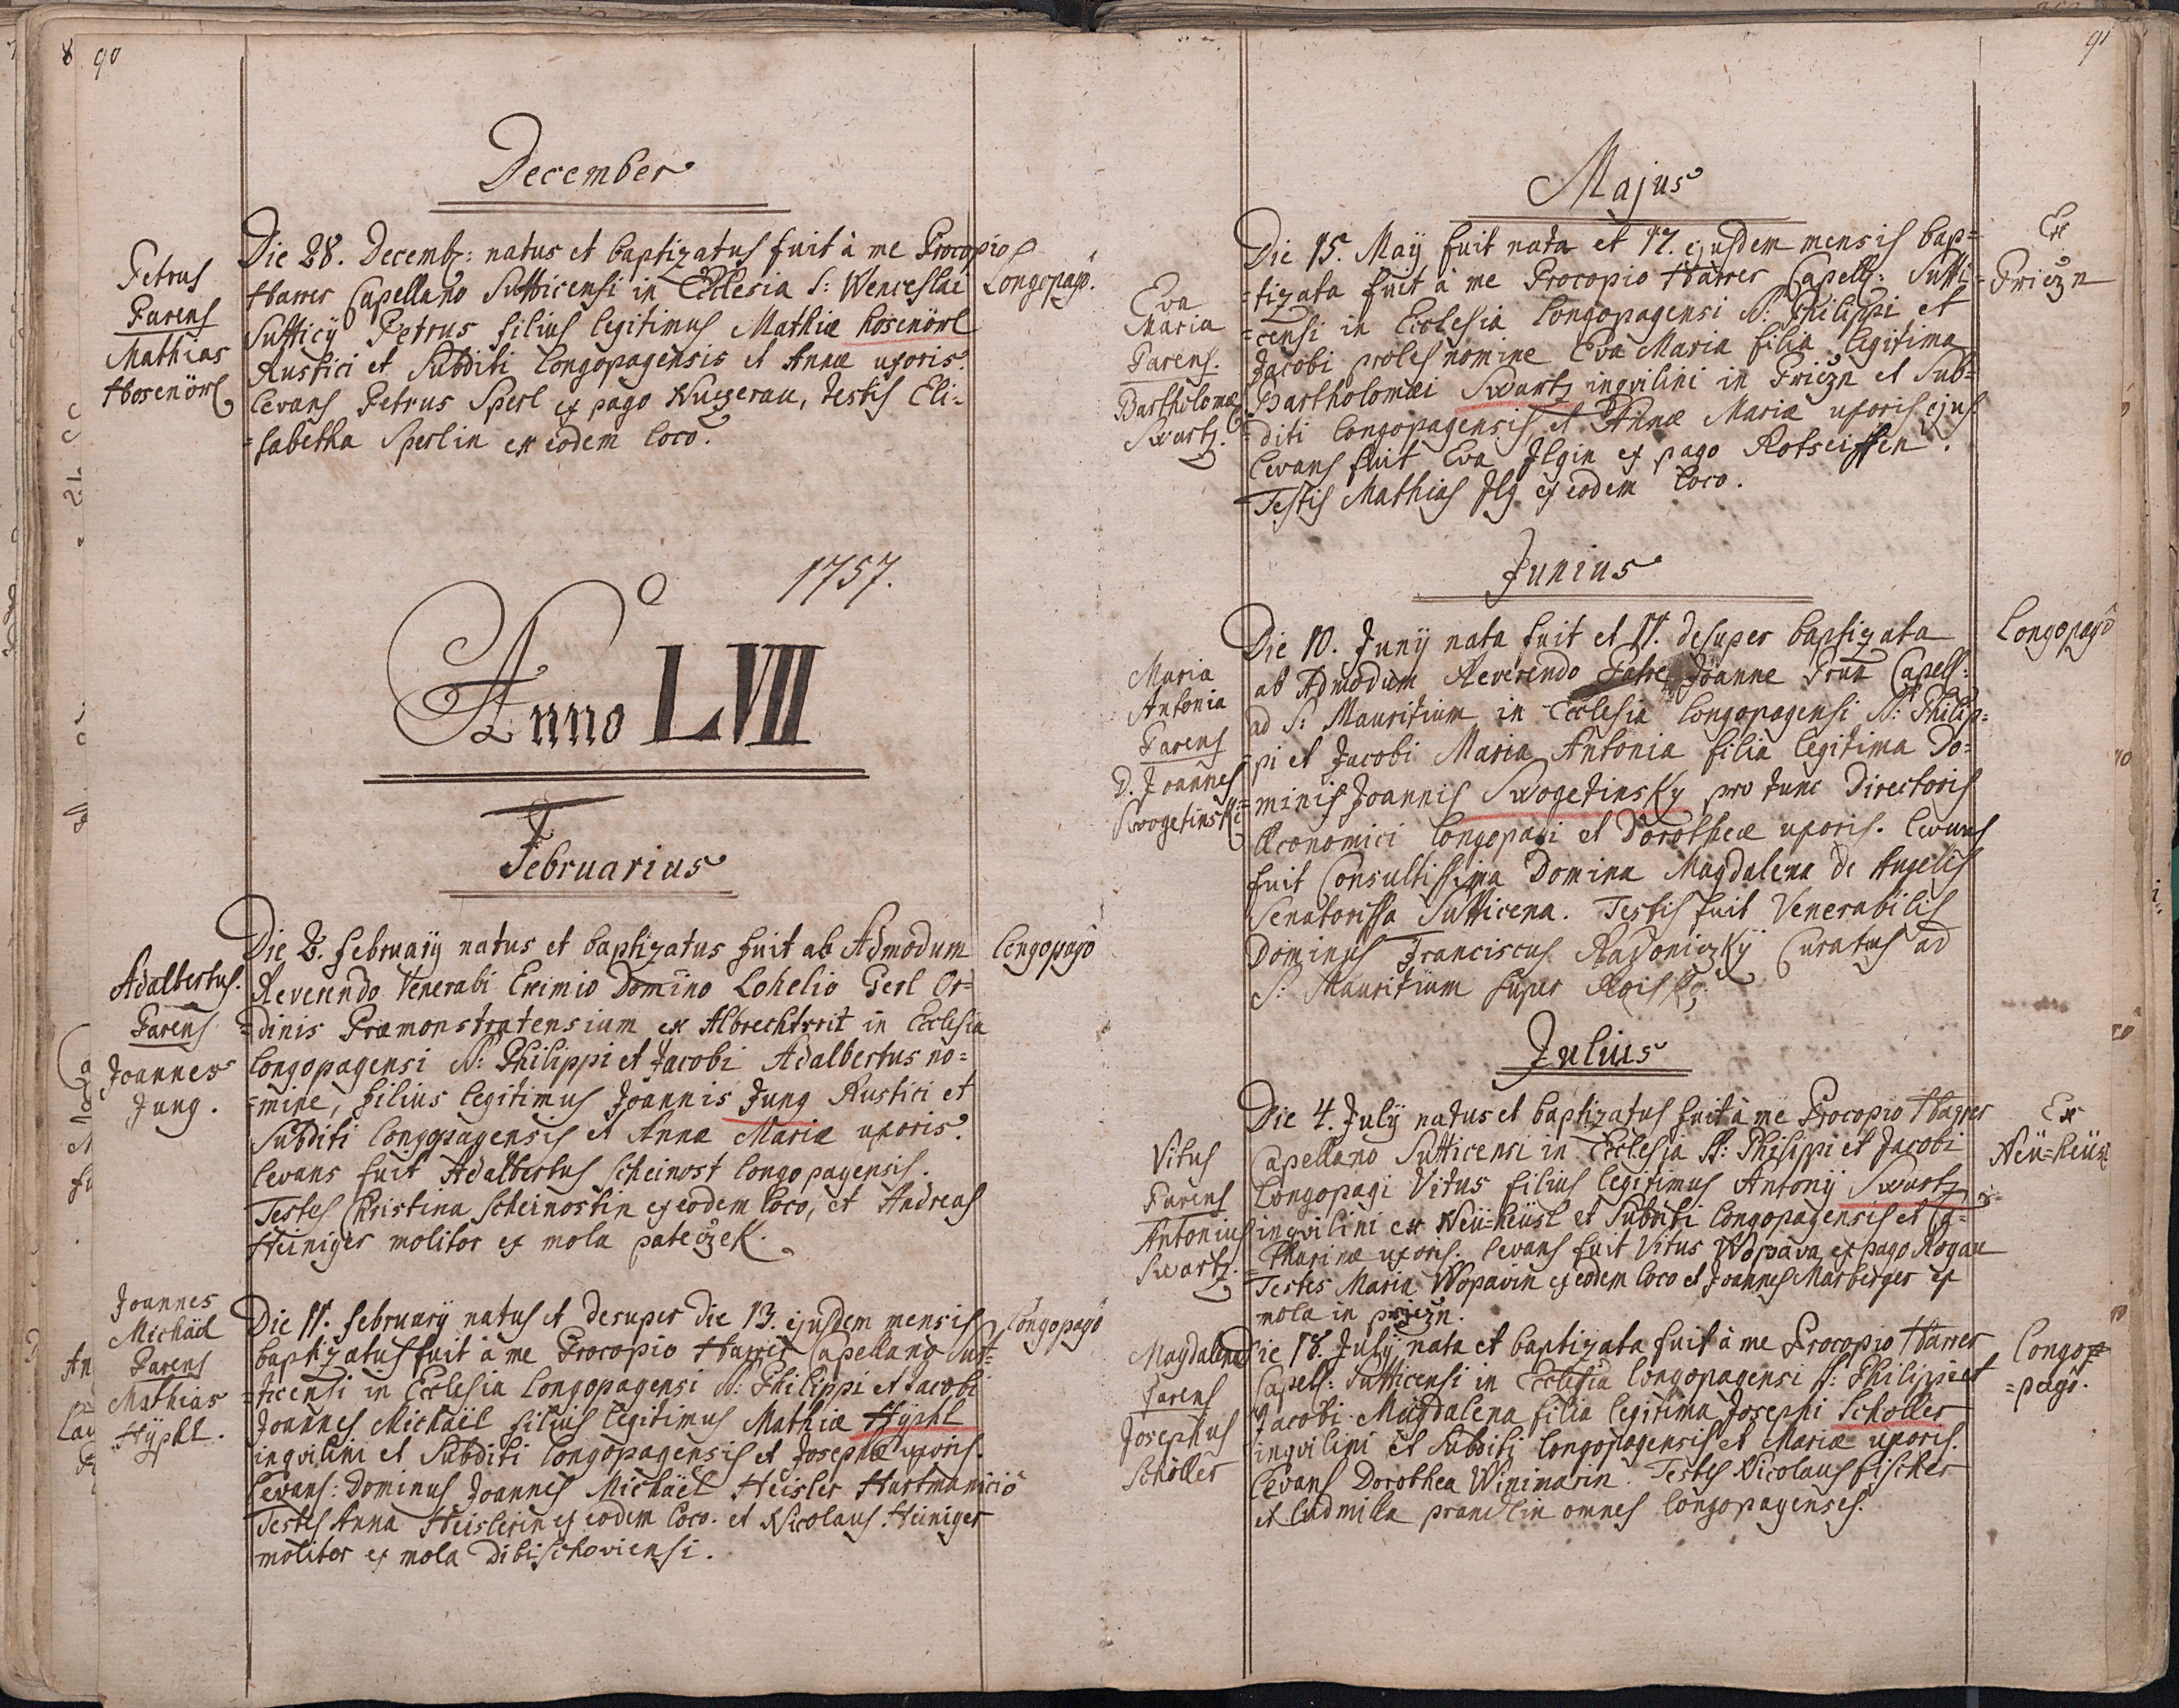 90
December
Petrus
Parens
Mathias
Hosenörl
Die 28. Decembr: natus et baptizatus fuit à me Procopio
Harrer Capellano Sutticensi in Ecclesia S: Wenceslai
Sutticÿ Petrus filius legitimus Mathiæ Hosenörl
Rustici et Subditi Longopagensis et Annæ uxoris.
Levans Petrus Sperl ex pago Nuzerau, Testis Eli-
=sabetha Sperlin ex eodem loco.
Longopagô.
1757.
Anno LVII
Februarius
Adalbertus.
Parens
Joannes
Jung.
Die 2. februarÿ natus et baptizatus fuit ab Admodum
Reverendo Venerabi Eximio Domino Lohelio Gerl Or-
=dinis Præmonstratensium ex Albrechtsrit in Ecclesia
Longopagensi S: Philippi et Jacobi Adalbertus no=
=mine, filius legitimus Joannis Jung Rustici et
Subditi Longopagensis et Annæ Mariæ uxoris.
Levans fuit Adalbertus Scheinost Longopagensis.
Testes Christina Scheinostin ex eodem loco, et Andreas
Heiniger molitor ex mola pateczek.
Longopagô
Joannes
Michäel
Parens
Mathias
Hÿphl.
Die 11. februarÿ natus et desuper die 13. ejusdem mensis
baptizatus fuit à me Procopio Harrer Capellano Sut-
=ticensi in Ecclesia Longopagensi S: Philippi et Jacobi
Joannes Michäel filius legitimus Mathiæ Hÿphl
inqvilini et Subditi Longopagensis et Josephæ uxoris.
Levans: Dominus Joannes Michäel Heisler Hartmanicio
Testes Anna Heislerin ex eodem loco. et Nicolaus Heiniger
molitor ex mola Dibischoviensi.
Longopagô
91
Majus
Eva
Maria
Parens.
Bartholomæ
Swartz.
Die 15. Maÿ fuit nata et 17. ejusdem mensis bap=
=tizata fuit à me Procopio Harrer Capell: Sutti=
=censi in Ecclesia Longopagensi S: Philippi et
Jacobi proles nomine Eva Maria filia legitima
Bartholomæi Swartz inqvilini in Priezn et Sub=
=diti Longopagensis et Annæ Mariæ uxoris ejus
Levans fuit Eva Ilgin ex pago Rotseiffen.
Testis Mathias Ilg ex eodem loco.
Ex
Priezn
Junius
Maria
Antonia
Parens
D. Joannes
Swogetinski
Die 10. Junÿ nata fuit et 11. desuper baptizata
ab Admodum Reverendo Patre Joanne Prua Capell:
ad S: Mauritium in Ecclesia Longopagensi S: Philip=
=pi et Jacobi Maria Antonia filia legitima Do=
=minis Joannis Swogetinsky pro tunc Directoris
Œconomici Longopagi et Dorotheæ uxoris. Levans
fuit Consultissima Domina Magdalena de Angelis
Senatorissa Sutticena. Testis fuit Venerabilis
Dominus Franciscus Radoniczkÿ Curatus ad
S: Mauritium super
Longopagô
Julius
Vitus
Parens
Antonius
Swartz.
Die 4. Julÿ natus et baptizatus fuit à me Procopio Harrer
Capellano Sutticensi in Ecclesia S: Philippi et Jacobi
Longopagi Vitus filius legitimus Antonÿ Swartz
inqvilini ex Neü=heüsl et Subditi Longopagensis et Ca=
=tharinæ uxoris. Levans fuit Vitus Wopava ex pago Rogau
Testes Maria Wopavin ex eodem loco et Joannes Marberger ex
mola in priezn.
Ex
Neü=heüsl
Magdalena
Parens
Josephus
Schöller
Die 18. Julÿ nata et baptizata fuit à me Procopio Harrer
Capell: Sutticensi in Ecclesia Longopagensi S: Philippi et
Jacobi Magdalena filia legitima Josephi Schöller
inqvilini et Subditi Longopagensis et Mariæ uxoris.
Levans Dorothea Winimarin. Testes Nicolaus fischer
et Ludmilla prandlin omnes Longopagenses.
Longo=
=pagô.